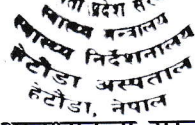 प्रदेश सर
स्वास्थ्य मन्त्रालय
स्वास्थ्य निर्देशनालय
हेटौंडा अस्पताल
हेटौंडा, नेपाल